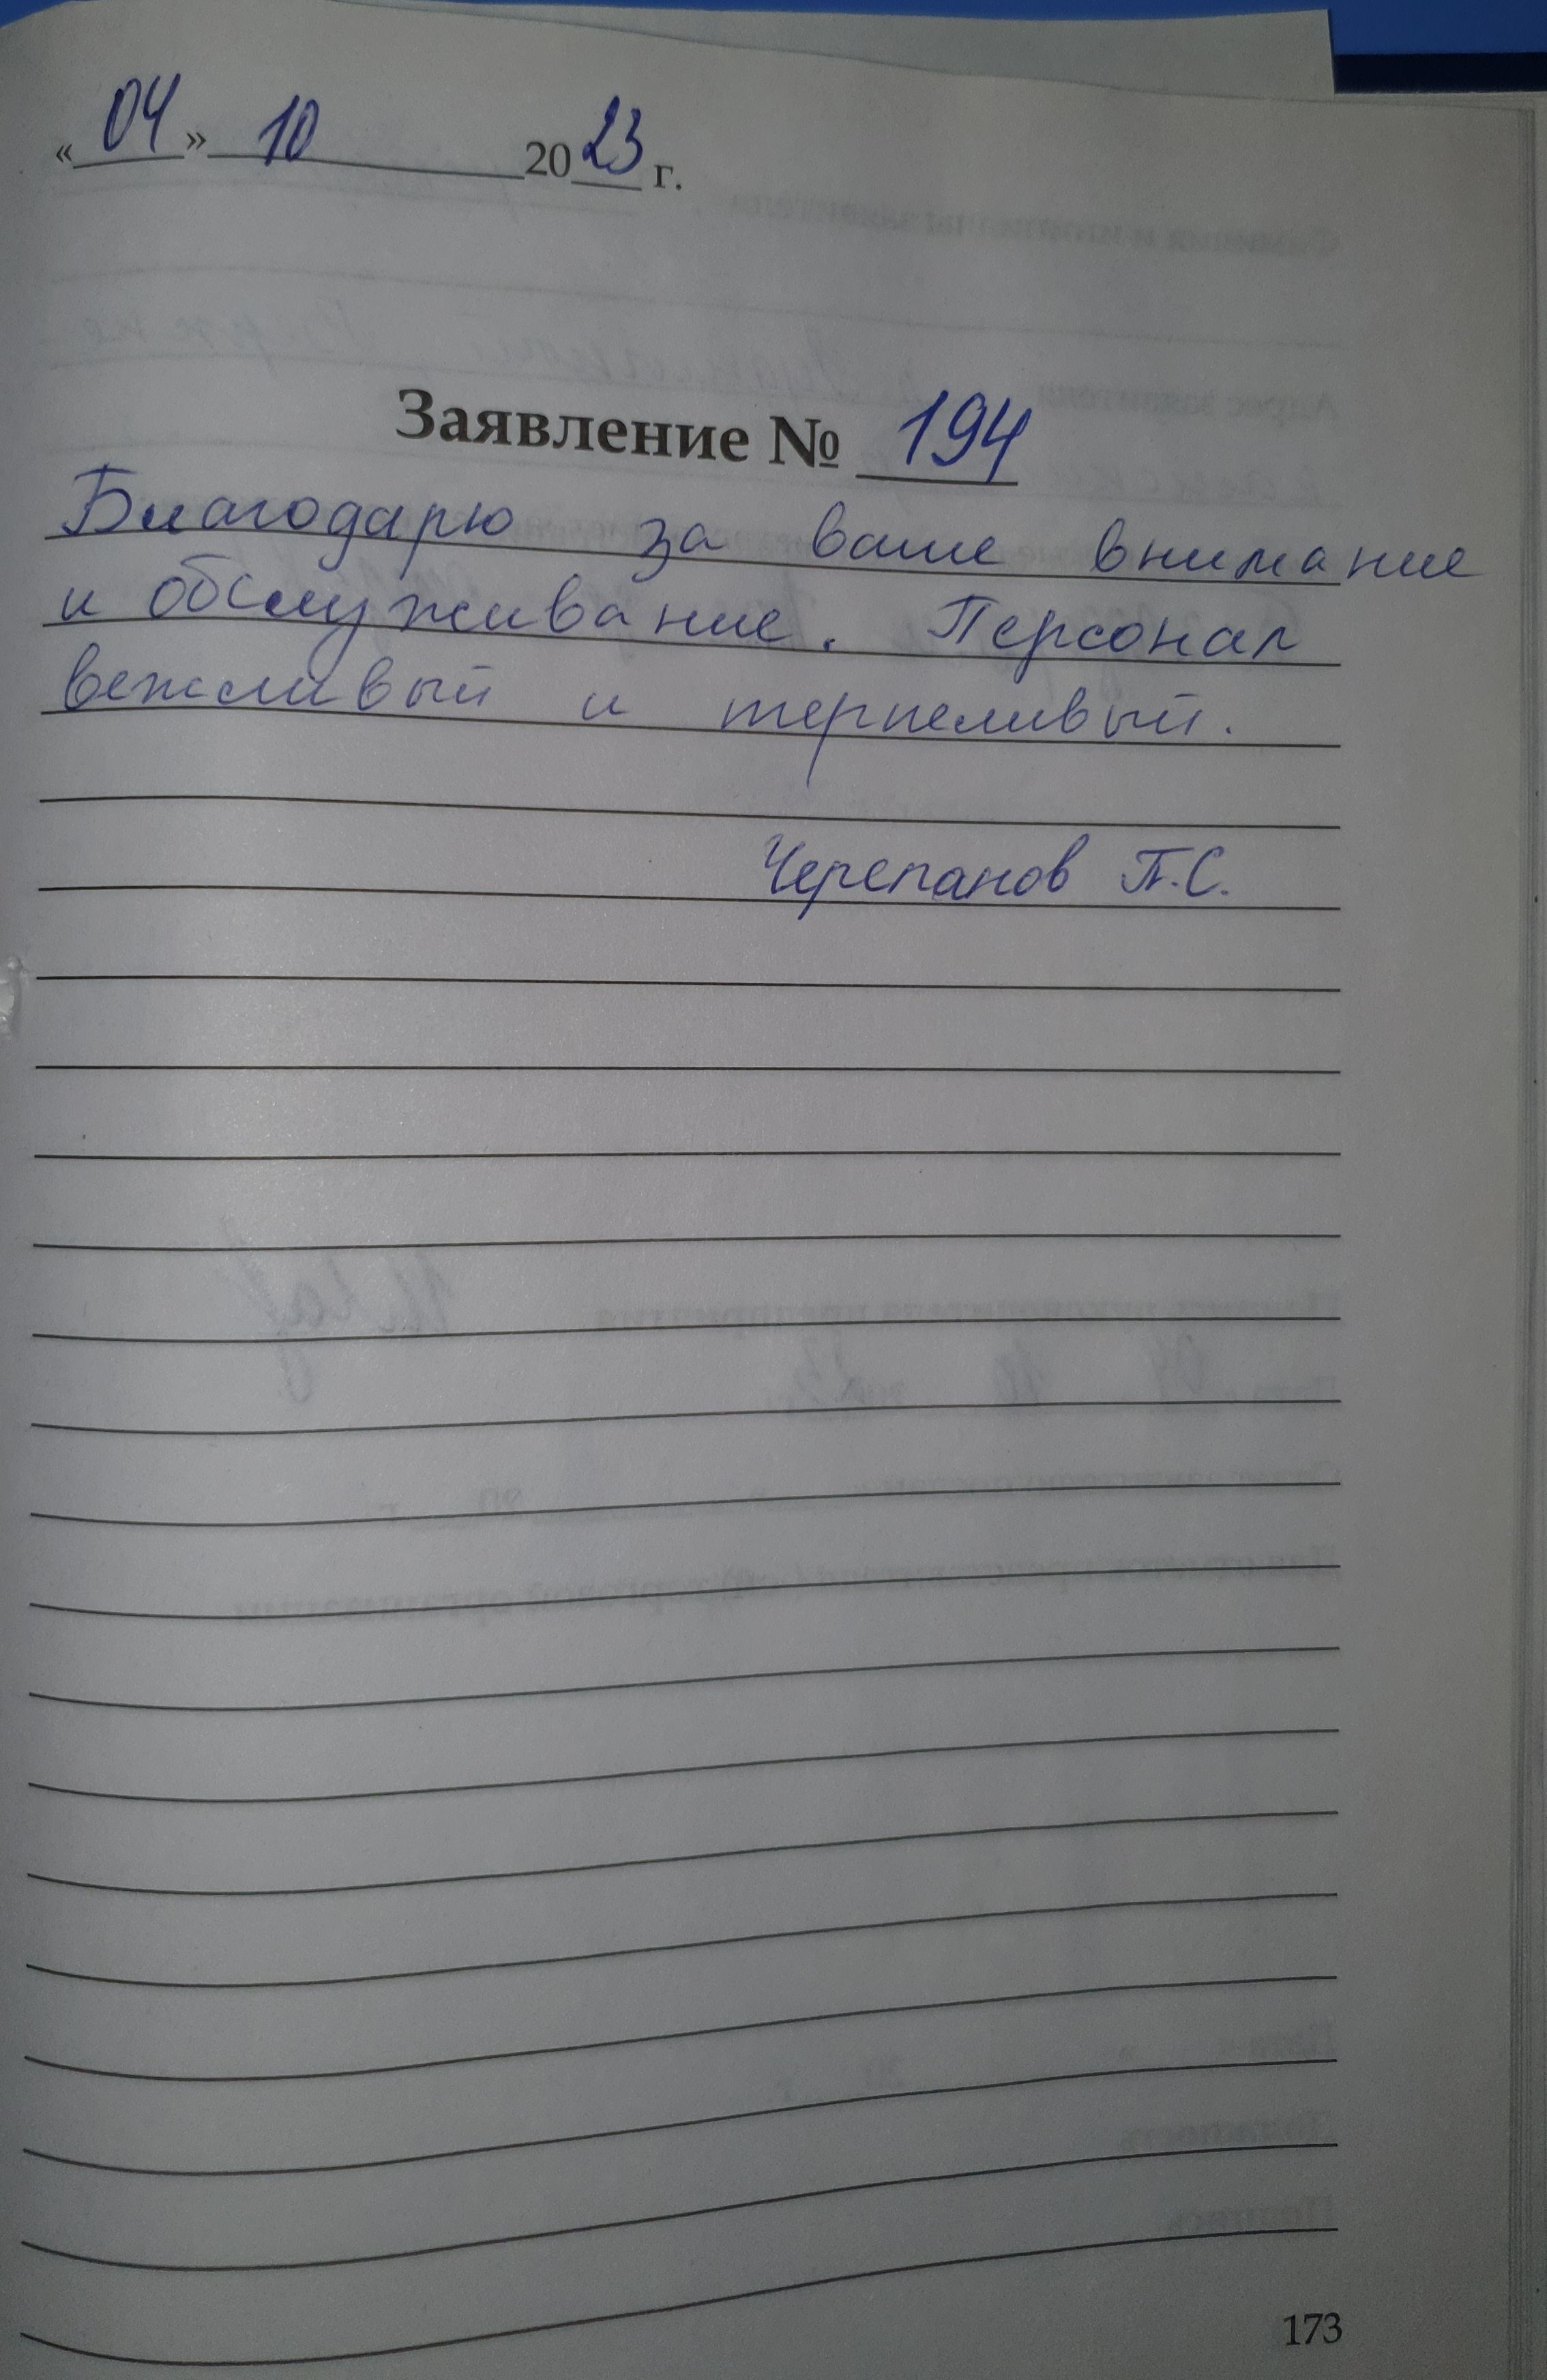 «04» 10 2023 г.
Заявление № 194
Благодарю за ваше внимание
и обслуживание. Персонал
вежливый и терпеливый.
Черепанов П.С.
173